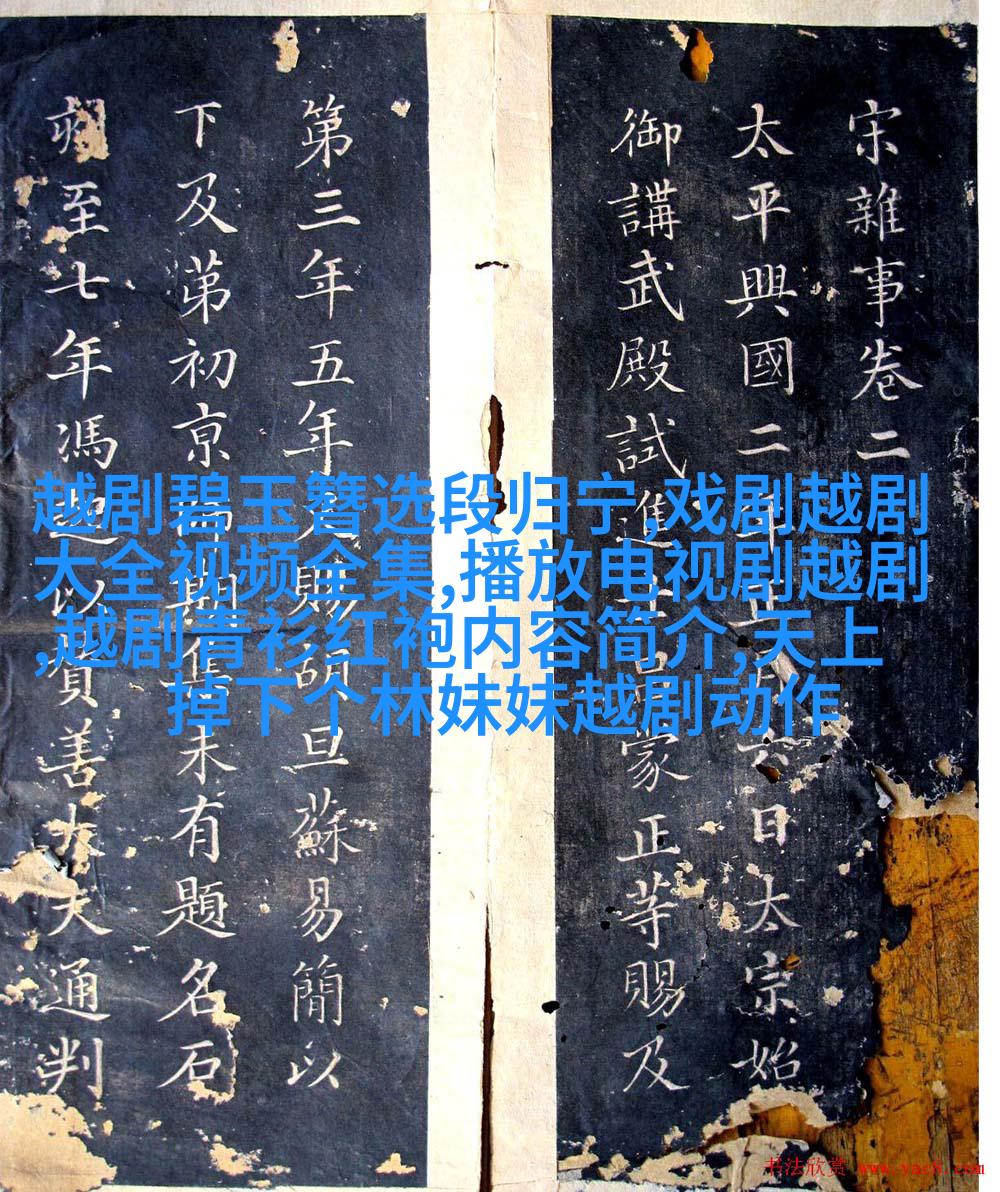 宋雜事卷二
太平興國二年正月六日太宗始
御講武殿試進士蒙正等賜及
第三年五年賜旦蘇易簡以
下及苐初京期集未有題名石
至七年馮以善大夫通判
越剧碧玉簪选段归宁,戏剧越剧
大全视频全集,播放电视剧越剧
,越剧青衫红袍内容简介,天上
掉下个林妹妹越剧动作
书法欣赏 www.yac8.com